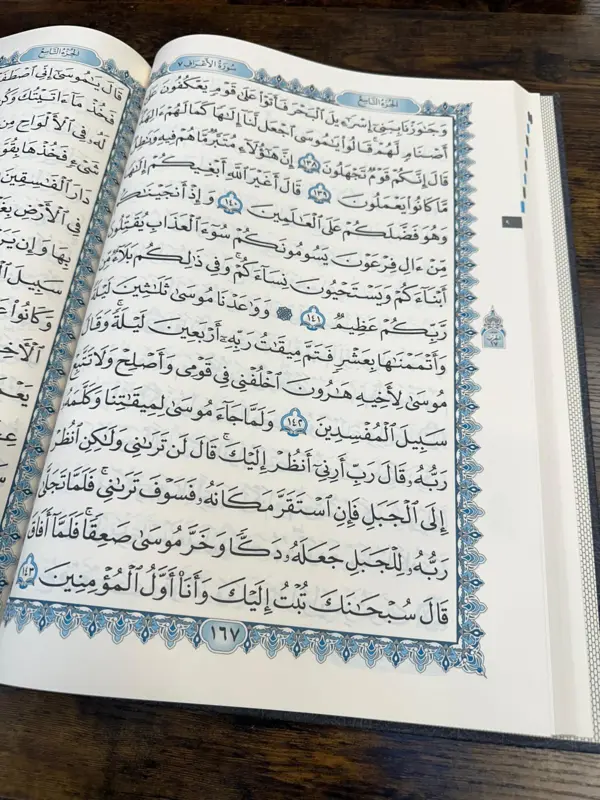 سُورَةُ الأَعْرَافِ ٧
الجُزْءُ التَّاسِعُ
وَجَٰوَزْنَا بِبَنِىٓ إِسْرَٰٓءِيلَ ٱلْبَحْرَ فَأَتَوْا۟ عَلَىٰ قَوْمٍ يَعْكُفُونَ عَلَىٰٓ
أَصْنَامٍ لَّهُمْ قَالُوا۟ يَٰمُوسَى ٱجْعَل لَّنَآ إِلَٰهًا كَمَا لَهُمْ ءَالِهَةٌ
قَالَ إِنَّكُمْ قَوْمٌ تَجْهَلُونَ ١٣٨ إِنَّ هَٰٓؤُلَآءِ مُتَبَّرٌ مَّا هُمْ فِيهِ وَبَٰطِلٌ
مَّا كَانُوا۟ يَعْمَلُونَ ١٣٩ قَالَ أَغَيْرَ ٱللَّهِ أَبْغِيكُمْ إِلَٰهًا
وَهُوَ فَضَّلَكُمْ عَلَى ٱلْعَٰلَمِينَ ١٤٠ وَإِذْ أَنجَيْنَٰكُم
مِّنْ ءَالِ فِرْعَوْنَ يَسُومُونَكُمْ سُوٓءَ ٱلْعَذَابِ يُقَتِّلُونَ
أَبْنَآءَكُمْ وَيَسْتَحْيُونَ نِسَآءَكُمْ ۚ وَفِى ذَٰلِكُم بَلَآءٌ مِّن
رَّبِّكُمْ عَظِيمٌ ١٤١ ۞ وَوَٰعَدْنَا مُوسَىٰ ثَلَٰثِينَ لَيْلَةً
وَأَتْمَمْنَٰهَا بِعَشْرٍ فَتَمَّ مِيقَٰتُ رَبِّهِۦٓ أَرْبَعِينَ لَيْلَةً ۚ وَقَالَ
مُوسَىٰ لِأَخِيهِ هَٰرُونَ ٱخْلُفْنِى فِى قَوْمِى وَأَصْلِحْ وَلَا تَتَّبِعْ
سَبِيلَ ٱلْمُفْسِدِينَ ١٤٢ وَلَمَّا جَآءَ مُوسَىٰ لِمِيقَٰتِنَا وَكَلَّمَهُۥ
رَبُّهُۥ قَالَ رَبِّ أَرِنِىٓ أَنظُرْ إِلَيْكَ ۚ قَالَ لَن تَرَىٰنِى وَلَٰكِنِ ٱنظُرْ
إِلَى ٱلْجَبَلِ فَإِنِ ٱسْتَقَرَّ مَكَانَهُۥ فَسَوْفَ تَرَىٰنِى ۚ فَلَمَّا تَجَلَّىٰ
رَبُّهُۥ لِلْجَبَلِ جَعَلَهُۥ دَكًّا وَخَرَّ مُوسَىٰ صَعِقًا ۚ فَلَمَّآ أَفَاقَ
قَالَ سُبْحَٰنَكَ تُبْتُ إِلَيْكَ وَأَنَا۠ أَوَّلُ ٱلْمُؤْمِنِينَ ١٤٣
١٦٧
الجُزْءُ التَّاسِعُ
قَالَ يَٰمُوسَىٰٓ إِنِّى ٱصْطَفَ
فَخُذْ مَآ ءَاتَيْتُكَ وَكُن
لَهُۥ فِى ٱلْأَلْوَاحِ مِن
شَىْءٍ فَخُذْهَا بِقُوَّ
دَارَ ٱلْفَٰسِقِينَ
فِى ٱلْأَرْضِ بِغَ
بِهَا وَإِن يَرَ
سَبِيلَ ٱل
وَكَانُوا۟ عَ
ٱلْءَاخِ
يَعْم